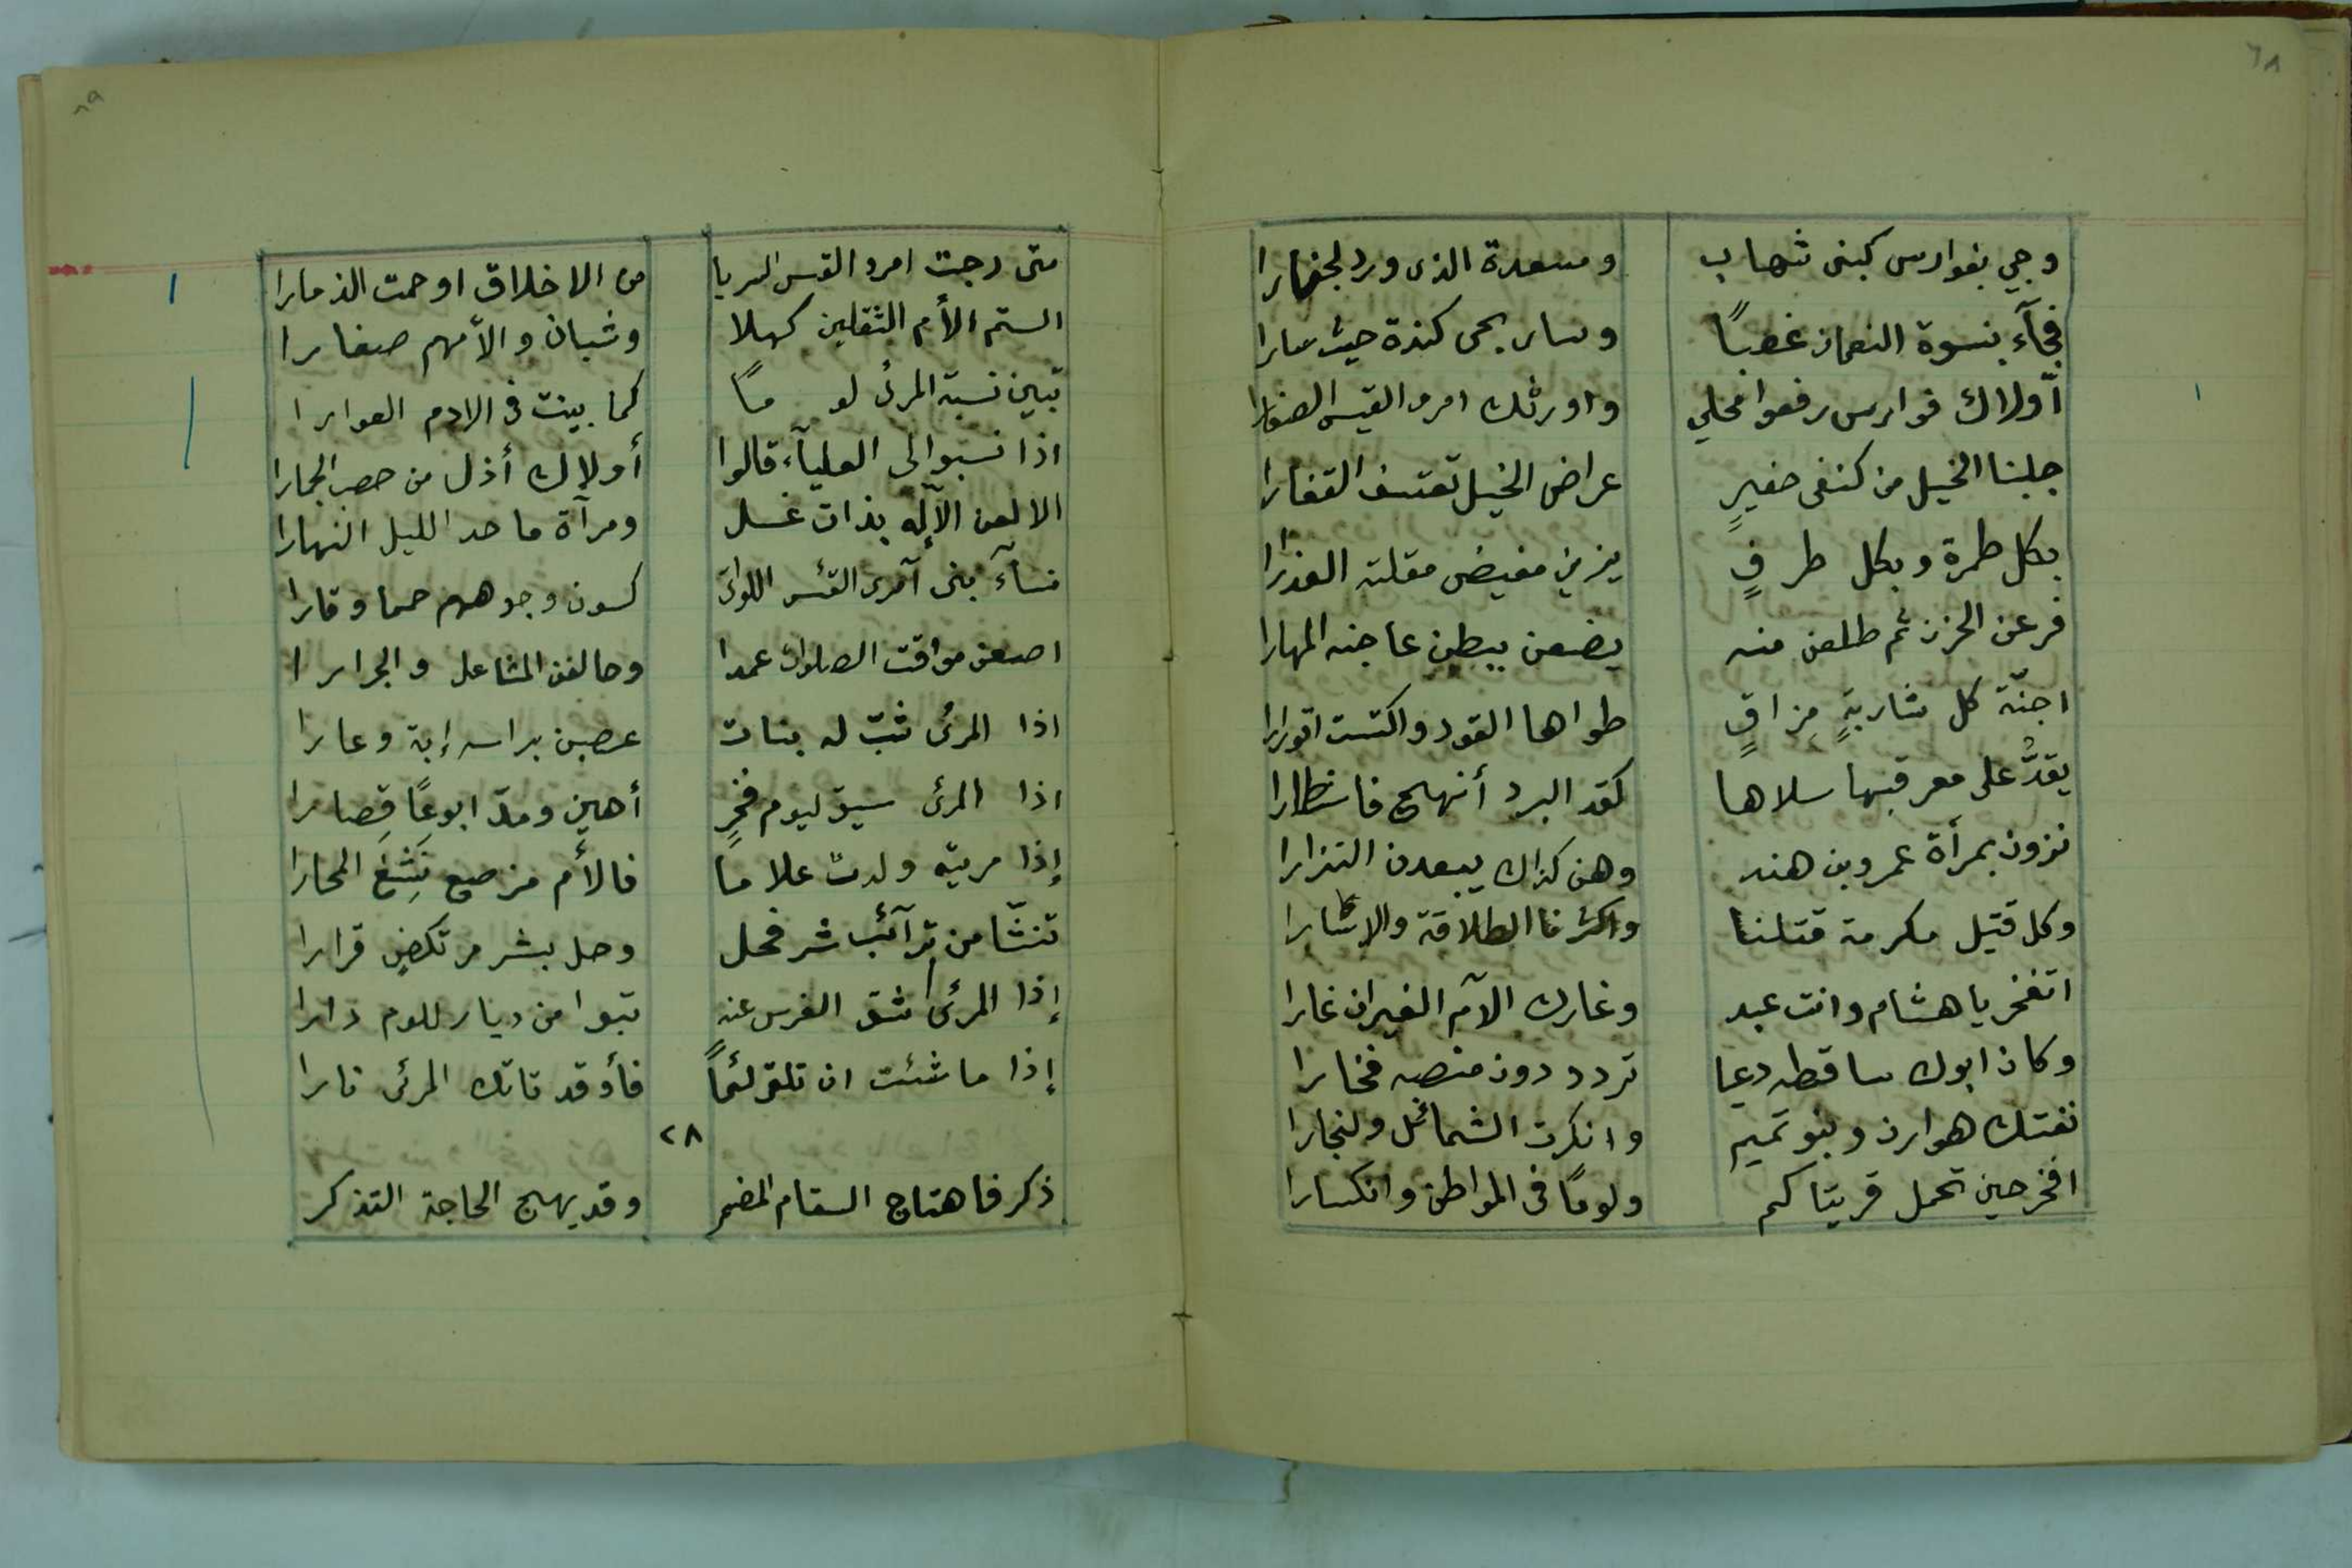 ٦٨
وجي بفوارس كبنى شهاب ومسعدة الذى ورد لجفارا
فجآء بنسوة النعمان غصبًا وسار بحى كندة حيث سارا
أولاك فوارس رفعوا محلي واورثك امرء القيس الصغارا
جلبنا الخيل من كنفى حفيرٍ عراض الخيل تعتسف القفارا
بكل طمرة وبكل طرفٍ يزين مفيض مقلته العذرا
فرعن الحزن ثم طلعن منه يضعن ببطن عاجنه المهارا
اجنّة كل شاربةٍ مزاقٍ طواها القود واكتست اقورارا
يقدُّ على معرقبها سلاها كقد البرد أنهج فاستطارا
نزون بمرأة عمرو بن هند وهن كذاك يبعدن التزارا
وكل قتيل مكرمة قتلنا واكثرنا الطلاقة والإسارا
اتفخر يا هشام وانت عبد وغارك الآم الغيران غارا
وكان ابوك ساقطه دعيا تردد دون منصبه فخارا
نفتك هوازن وبنو تميم وانكرت الشمائل ولنجارا
افخر حين تحمل قريتاكم ولومًا فى المواطن وانكسارا
٦٩
متى رجت امرء القيس السريا من الاخلاق او حمت الذمارا
الستم الأم الثقلين كهلا وشبان والأمهم صغارا
تبين نسبة المرئ لو مًا كما بينت فى الادم العوارا
اذا نسبوا لى العليآء قالوا أولاك أذل من حصب الجمارا
الا لعن الآله بذات غسل ومرآة ما حدا الليل النهارا
نسآء بنى آمرى القئس اللواتى كسون وجوههم حمما وقارا
اضعن مواقت الصلوات عمدا وحالفن المشاعل والجرارا
اذا المرئى شبّ له بنات عصبن براسه إبة وعارا
اذا المرئى سيق ليوم فخرٍ أهين ومدّ ابوعًا قِصارا
إذا مريته ولدت غلامًا فالأم مرضع نَشِغَ المحارا
تنشّا من ترآئب شر فحل وحل بشر مرتكضٍ قرارا
إذا المرئى شق الغرس عنه تبوا من ديار للوم دارا
إذا ما شئت ان تلق لئمًا فأوقد تاتك المرئى نارا
٢٨
ذكر فاهتاج السقام المضمر وقد يهيج الحاجة التذكر